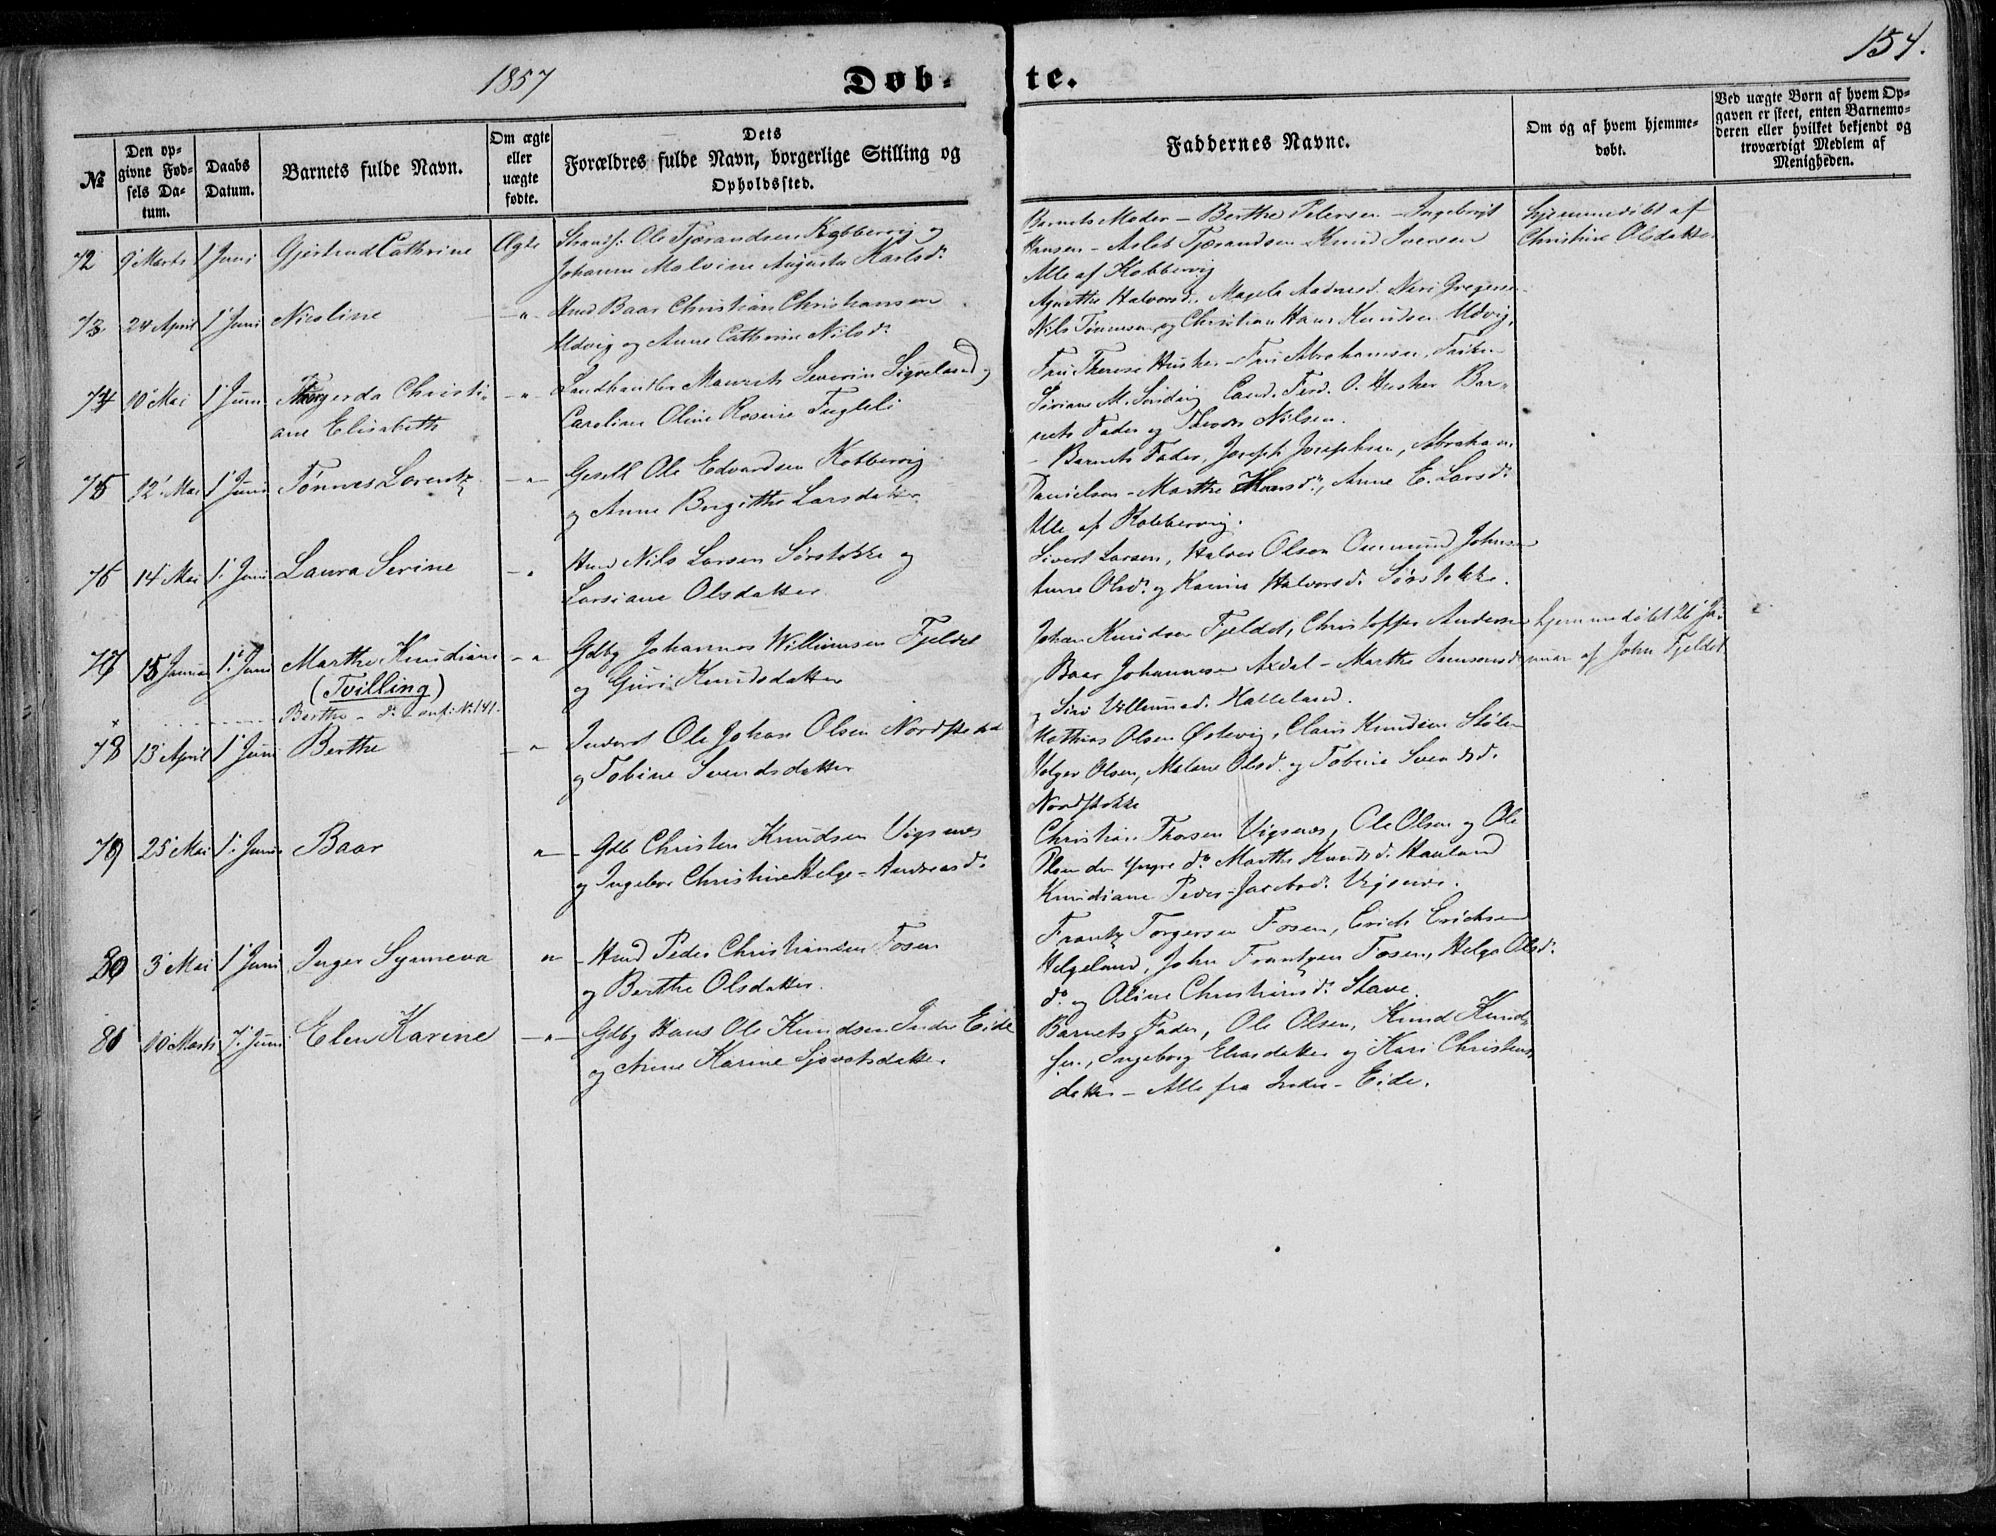 1857
Døb-
te.
154.
No
Den op-
givne Fød-
sels Da-
tum.
Daabs
Datum.
Barnets fulde Navn.
Om ægte
eller
uægte
fødte.
Dets
Forældres fulde Navn, borgerlige Stilling og
Opholdssted.
Faddernes Navne.
Om og af hvem hjemme-
døbt.
Ved uægte Børn af hvem Op-
gaven er skeet, enten Barnemo-
deren eller hvilket bekjendt og
troværdigt Medlem af
Menigheden.
72 9 Marts 1 Juni Gjertrud Cathrine Ægte Strands: Ole Tjerandsen Kobbervig og
Johanne Malvine Augusta Karlsd.
Barnets Moder - Berthe Petersen - Ingebrigt
Hansen - Aslet Tjerandsen - Knud Iversen
Alle af Kobbervig
hjemmedøbt af
Christine Olsdatter
73 24 April 1 Juni Nicoline - " - Hmd Baar Christian Christiansen
Udvig og Anne Cathrine Nilsd.
Agnethe Halvorsd. Magela Aadnesd.
Nils Tønnesen og Christian Hans Knudsen Udvig
74 10 Mai 1 Juni Thorgerda Christi-
ane Elisabeth - " - Landhandler Mauritz Severin Sigveland og
Caroline Oline Rosine Fugleli
Fru Therese Husher - Fru Abrahamsen,
M. Cand. Ferd. O. Husher Bar-
nets Fader og Nilsen.
75 12 Mai 1 Juni Tønnes Lorentz - " - Gesell Ole Edvardsen Kobbervig
og Anne Birgitthe Larsdatter
- Barnets Fader, Joseph Josephsen, Abraham
Danielsen - Marthe Hansd., Anne E. Larsd.
Alle af Kobbervig.
76 14 Mai 1. Juni Laura Serine - " Hmd Nils Larsen Sørstokke og
Larsiane Olsdatter
Sivert Larsen, Halvor Olsen Ommund Johnsen
Anne Olsd. og Karine Halvorsd. Sørstokke.
77 15 Januar 1. Juni Marthe Knudiane - " Gdbg Johannes Willumsen Fjeldet
(Tvilling)
og Guri Knudsdatter
Berthe - do conf: No 141.
Johan Knudsen Fjeldet, Christoffer Andersen
Baar Johannesen Axdal - Marthe Samsonsd.
og Siri Villumsd. Halleland.
hjemmedøbt 26 Ja-
nuar af John Fjeldet
78 13 April 1 Juni Berthe - " Inderst Ole Johan Olsen Nordstokke
og Tobine Svendsdatter
Mathias Olsen Østevig, Claus Knudsen Stølen
Holger Olsen, Malene Olsd. og Tobine Svendsd.
Nordstokke
79 25 Mai 1. Juni Baar " - Gdb Christen Knudsen Vigsnæs
og Ingebor Christine Helge-Andreasd.
Christian Thorsen Vigsnæs, Ole Olsen og Ole
Olsen den Yngre do Marthe Knudsd. Hauland
Knudiane Peder-Jacobsd. Vigsnæs.
80 3 Mai 1 Juni Inger Synneva " - Hmd Peder Christiansen Fosen
og Berthe Olsdatter.
Frantz Torgersen Fosen, Erich Erichsen
Helgeland, John Frantzen Fosen, Helga Olsd.
do og Oline Christiansd. Stave.
81 10 Marts 7. Juni Elen Karine - " - Gdbg Hans Ole Knudsen Indre Eide
og Anne Karine Sjovatsdatter.
Barnets Fader, Ole Olsen, Knud Knud-
sen, Ingeborg Eliasdatter og Kari Christens-
datter - Alle fra Indre-Eide.